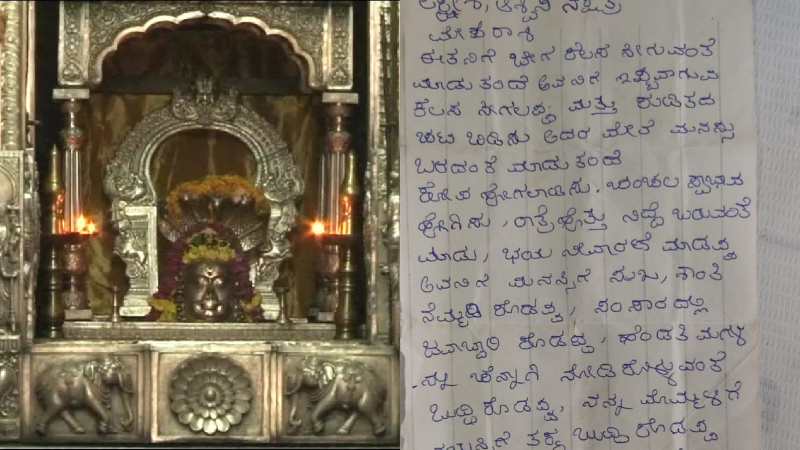 ಲಕ್ಷ್ಮೀಶ, ಅಶ್ವಿನಿ ನಕ್ಷತ್ರ
ಮೇಶ ರಾಶಿ
ಈತನಿಗೆ ಬೇಗ ಕೆಲಸ ಸೀಗುವಂತೆ
ಮಾಡು ತಂದೆ ಅವನಿಗೆ ಇಷ್ಟವಾಗುವ
ಕೆಲಸ ಸೀಗಲಪ್ಪ ಮತ್ತು ಕುಡಿತದ
ಚಟ ಬಿಡಿಸು ಅದರ ಮೇಲೆ ಮನಸ್ಸು
ಬರದಂತೆ ಮಾಡು ತಂದೆ
ಕೋಪ ಹೋಗಲಾಡಿಸು. ಚಂಚಲ ಸ್ವಾಭಾವ
ಹೋಗಿಸು, ರಾತ್ರೆ ಹೊತ್ತು ನಿದ್ದೆ ಬರುವಂತೆ
ಮಾಡು, ಭಯ ನಿವಾರಣೆ ಮಾಡಪ್ಪ
ಅವನಿಗೆ ಮನಸ್ಸಿಗೆ ಸುಖ, ಶಾಂತಿ
ನೆಮ್ಮದಿ ಕೊಡಪ್ಪ, ಸಂಸಾರದಲ್ಲಿ
ಜವಾಬ್ದಾರಿ ಕೊಡಪ್ಪ, ಹೆಂಡತಿ ಮಗಳ
ನ್ನು ಚೆನ್ನಾಗಿ ನೋಡಿಕೊಳ್ಳುವಂತೆ
ಬುದ್ಧಿ ಕೊಡಪ್ಪ, ನನ್ನ ಮೊಮ್ಮಗಳಿಗೆ
ತಕ್ಕ ಬುದ್ಧಿ ಕೊಡಪ್ಪ